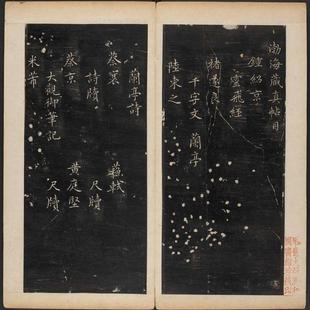 渤海藏真帖目
鍾紹京
靈飛經
褚遂良
千字文 蘭亭
陸柬之
蘭亭詩
蔡襄
詩牘
蘇軾
尺牘
蔡京
大觀御筆記
黄庭堅
尺牘
米芾